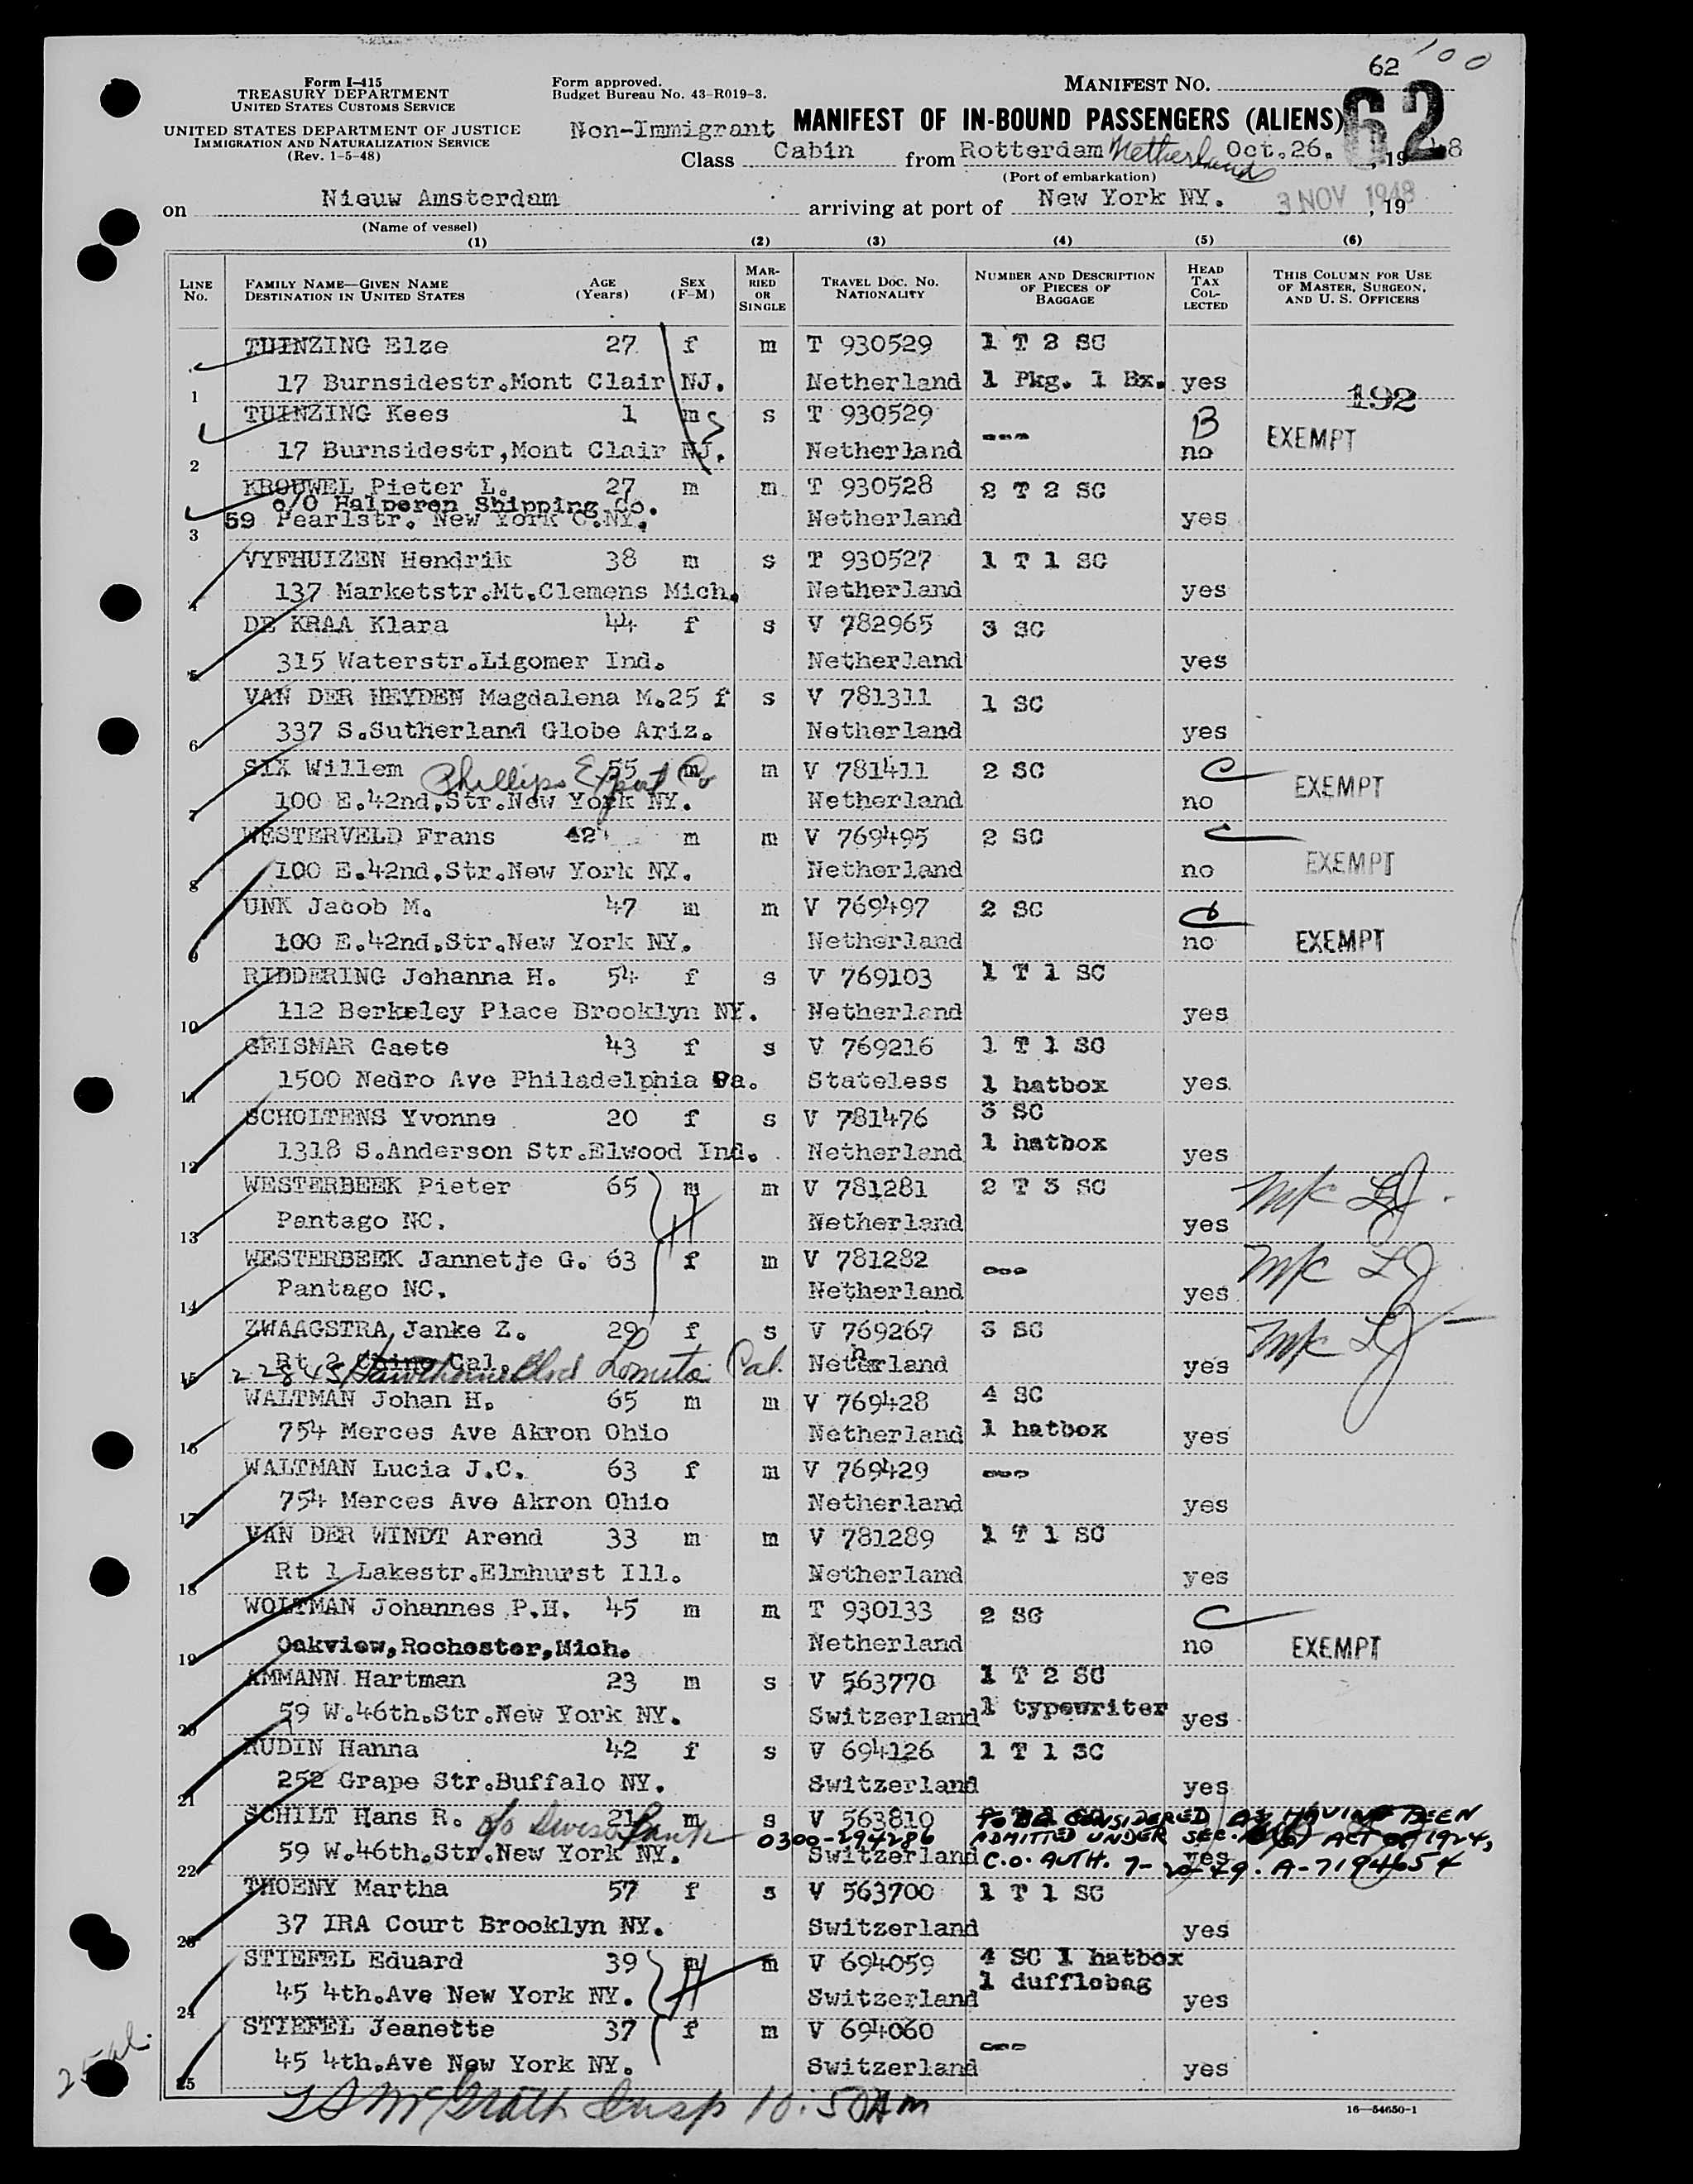 62 100
Form I-415
TREASURY DEPARTMENT
UNITED STATES CUSTOMS SERVICE
UNITED STATES DEPARTMENT OF JUSTICE
IMMIGRATION AND NATURALIZATION SERVICE
(Rev. 1-5-48)
Form approved.
Budget Bureau No. 43-R019-3.
MANIFEST NO.
62
Non-Immigrant MANIFEST OF IN-BOUND PASSENGERS (ALIENS)
Class Cabin from Rotterdam Netherlands Oct.26. , 19 48
(Port of embarkation)
on Nieuw Amsterdam arriving at port of New York NY. 3 NOV 1948 , 19
(Name of vessel)
(1) (2) (3) (4) (5) (6)
LINE NO. FAMILY NAME—GIVEN NAME DESTINATION IN UNITED STATES AGE (Years) SEX (F-M) MARRIED OR SINGLE TRAVEL DOC. NO. NATIONALITY NUMBER AND DESCRIPTION OF PIECES OF BAGGAGE HEAD TAX COLLECTED THIS COLUMN FOR USE OF MASTER, SURGEON, AND U. S. OFFICERS
TUINZING Elze 27 f m T 930529 1 T 2 SC
1 17 Burnsidestr.Mont Clair NJ. Netherland 1 Pkg. 1 Bx. yes 192
TUINZING Kees 1 m s T 930529 --- B EXEMPT
2 17 Burnsidestr,Mont Clair NJ. Netherland no
KROUWEL Pieter L. 27 m m T 930528 2 T 2 SC
c/o Halperen Shipping Co.
3 59 Pearlstr. New York C.NY. Netherland yes
VYFHUIZEN Hendrik 38 m s T 930527 1 T 1 SC
4 137 Marketstr.Mt.Clemens Mich. Netherland yes
DE KRAA Klara 44 f s V 782965 3 SC
5 315 Waterstr.Ligomer Ind. Netherland yes
VAN DER HEYDEN Magdalena M.25 f s V 781311 1 SC
6 337 S.Sutherland Globe Ariz. Netherland yes
SIX Willem 55 m m V 781411 2 SC C EXEMPT
Phillips Export Co
7 100 E.42nd.Str.New York NY. Netherland no
WESTERVELD Frans 42 m m V 769495 2 SC C
8 100 E.42nd.Str.New York NY. Netherland no EXEMPT
UNK Jacob M. 47 m m V 769497 2 SC C
9 100 E.42nd.Str.New York NY. Netherland no EXEMPT
RIDDERING Johanna H. 54 f s V 769103 1 T 1 SC
10 112 Berkeley Place Brooklyn NY. Netherland yes
GEISMAR Gaete 43 f s V 769216 1 T 1 SC
11 1500 Nedro Ave Philadelphia Pa. Stateless 1 hatbox yes
SCHOLTENS Yvonne 20 f s V 781476 3 SC
12 1318 S.Anderson Str.Elwood Ind. Netherland 1 hatbox yes
WESTERBEEK Pieter 65 m m V 781281 2 T 3 SC
13 Pantago NC. Netherland yes
WESTERBEEK Jannetje G. 63 f m V 781282 ---
14 Pantago NC. Netherland yes
ZWAAGSTRA Janke Z. 29 f s V 769267 3 SC
15 Rt 2 Chino Cal. Netherland yes
22845 Hawthorne Blvd Lomita Cal.
WALTMAN Johan H. 65 m m V 769428 4 SC
16 754 Merces Ave Akron Ohio Netherland 1 hatbox yes
WALTMAN Lucia J.C. 63 f m V 769429 ---
17 754 Merces Ave Akron Ohio Netherland yes
VAN DER WINDT Arend 33 m m V 781289 1 T 1 SC
18 Rt 1 Lakestr.Elmhurst Ill. Netherland yes
WOLTMAN Johannes P.H. 45 m m T 930133 2 SC C
19 Oakview,Rochester,Mich. Netherland no EXEMPT
AMMANN Hartman 23 m s V 563770 1 T 2 SC
20 59 W.46th.Str.New York NY. Switzerland 1 typewriter yes
RUDIN Hanna 42 f s V 694126 1 T 1 SC
21 252 Grape Str.Buffalo NY. Switzerland yes
SCHILT Hans R. c/o Swiss Bank 21 m s V 563810 TO BE CONSIDERED AS HAVING BEEN
0300-294286 ADMITTED UNDER SEC. ACT OF 1924,
22 59 W.46th.Str.New York NY. Switzerland yes C.O. AUTH. 7-20-49. A-7194654
THOENY Martha 57 f s V 563700 1 T 1 SC
23 37 IRA Court Brooklyn NY. Switzerland yes
STIEFEL Eduard 39 m m V 694059 4 SC 1 hatbox
24 45 4th.Ave New York NY. Switzerland 1 dufflebag yes
STIEFEL Jeanette 37 f m V 694060 ---
25 45 4th.Ave New York NY. Switzerland yes
McGrath Insp 10:50 AM
16—54650-1